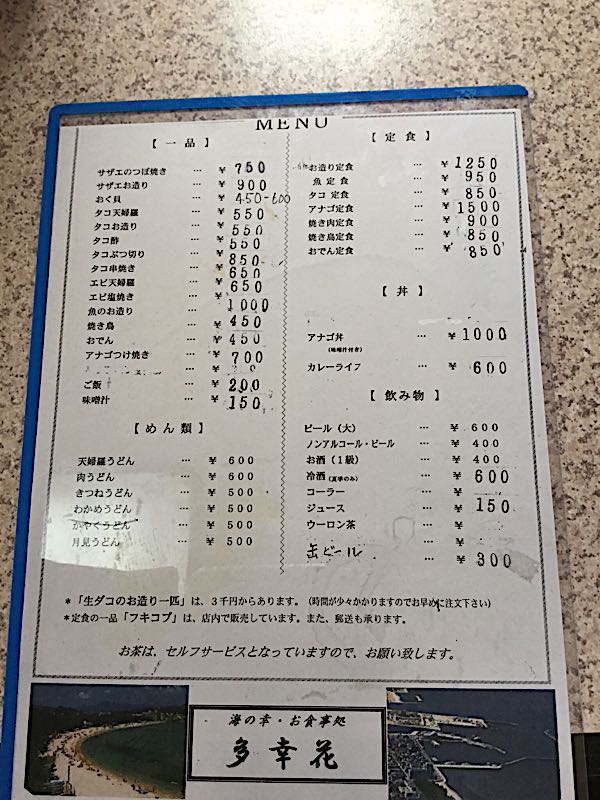 MENU
【一品】
サザエのつぼ焼き … ¥ 750
サザエお造り … ¥ 900
おく貝 … ¥ 450-600
タコ天婦羅 … ¥ 550
タコお造り … ¥ 550
タコ酢 … ¥ 550
タコぶつ切り … ¥ 850
タコ串焼き … ¥ 650
エビ天婦羅 … ¥ 650
エビ塩焼き … ¥
魚のお造り … ¥ 1000
焼き鳥 … ¥ 450
おでん … ¥ 450
アナゴつけ焼き … ¥ 700
ご飯 … ¥ 200
味噌汁 … ¥ 150
【めん類】
天婦羅うどん … ¥ 600
肉うどん … ¥ 600
きつねうどん … ¥ 500
わかめうどん … ¥ 500
かやくうどん … ¥ 500
月見うどん … ¥ 500
【定食】
お造り定食 … ¥ 1250
魚定食 … ¥ 950
タコ定食 … ¥ 850
アナゴ定食 … ¥ 1500
焼き肉定食 … ¥ 900
焼き鳥定食 … ¥ 850
おでん定食 … ¥ 850
【丼】
アナゴ丼 … ¥ 1000
(味噌汁付き)
カレーライス … ¥ 600
【飲み物】
ビール(大) … ¥ 600
ノンアルコール・ビール … ¥ 400
お酒(1級) … ¥ 400
冷酒(夏季のみ) … ¥ 600
コーラー … ¥
ジュース … ¥ 150
ウーロン茶 … ¥
缶ビール … ¥ 300
*「生ダコのお造り一匹」は、3千円からあります。(時間が少々かかりますのでお早めに注文下さい)
*定食の一品「フキコブ」は、店内で販売しています。また、郵送も承ります。
お茶は、セルフサービスとなっていますので、お願い致します。
海の幸・お食事処
多幸花